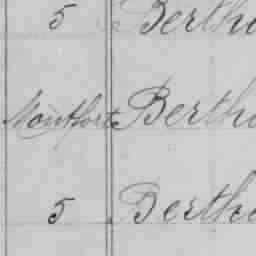 5 Bertho
Montfort Bertho
5 Bertho